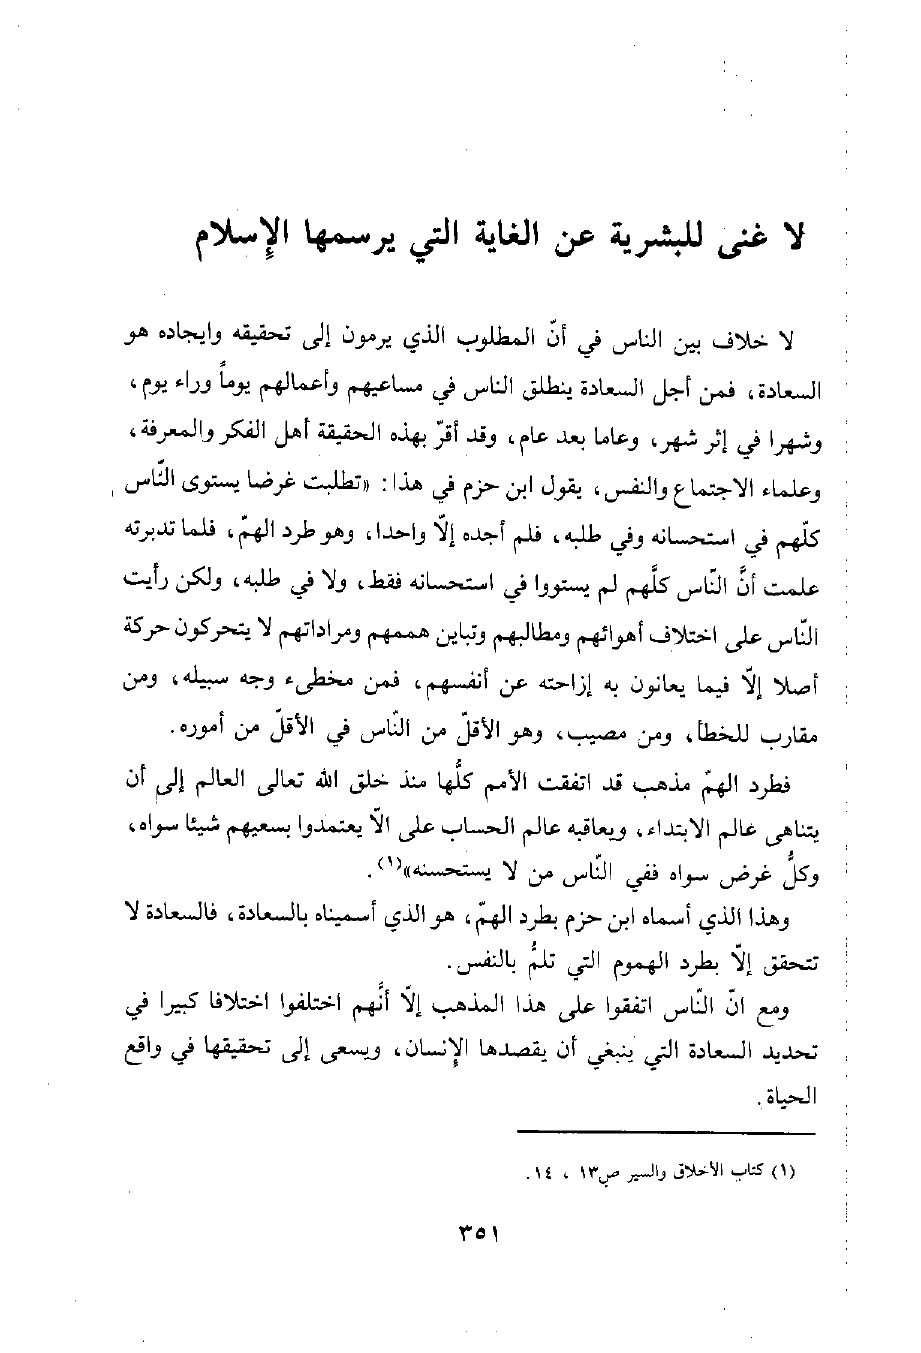 لا غنى للبشرية عن الغاية التي يرسمها الإسلام
لا خلاف بين الناس في أنّ المطلوب الذي يرمون إلى تحقيقه وايجاده هو
السعادة، فمن أجل السعادة ينطلق الناس في مساعيهم وأعمالهم يوماً وراء يوم،
وشهرا في إثر شهر، وعاما بعد عام، وقد أقرّ بهذه الحقيقة أهل الفكر والمعرفة،
وعلماء الاجتماع والنفس، يقول ابن حزم في هذا: «تطلبت غرضا يستوى النّاس
كلّهم في استحسانه وفي طلبه، فلم أجده إلّا واحدا، وهو طرد الهمّ، فلما تدبرته
علمت أنَّ النّاس كلَّهم لم يستووا في استحسانه فقط، ولا في طلبه، ولكن رأيت
النّاس على اختلاف أهوائهم ومطالبهم وتباين هممهم ومراداتهم لا يتحركون حركة
أصلا إلّا فيما يعانون به إزاحته عن أنفسهم، فمن مخطىء وجه سبيله، ومن
مقارب للخطأ، ومن مصيب، وهو الأقلّ من النّاس في الأقلّ من أموره.
فطرد الهمّ مذهب قد اتفقت الأمم كلُّها منذ خلق الله تعالى العالم إلى أن
يتناهى عالم الابتداء، ويعاقبه عالم الحساب على الاّ يعتمدوا بسعيهم شيئا سواه،
وكلُّ غرض سواه ففي النّاس من لا يستحسنه»(١).
وهذا الذي أسماه ابن حزم بطرد الهمّ، هو الذي أسميناه بالسعادة، فالسعادة لا
تتحقق إلّا بطرد الهموم التي تلمُّ بالنفس.
ومع انّ النّاس اتفقوا على هذا المذهب إلّا أنَّهم اختلفوا اختلافا كبيرا في
تحديد السعادة التي ينبغي أن يقصدها الإنسان، ويسعى إلى تحقيقها في واقع
الحياة.
(١) كتاب الأخلاق والسير ص١٣، ١٤.
٣٥١